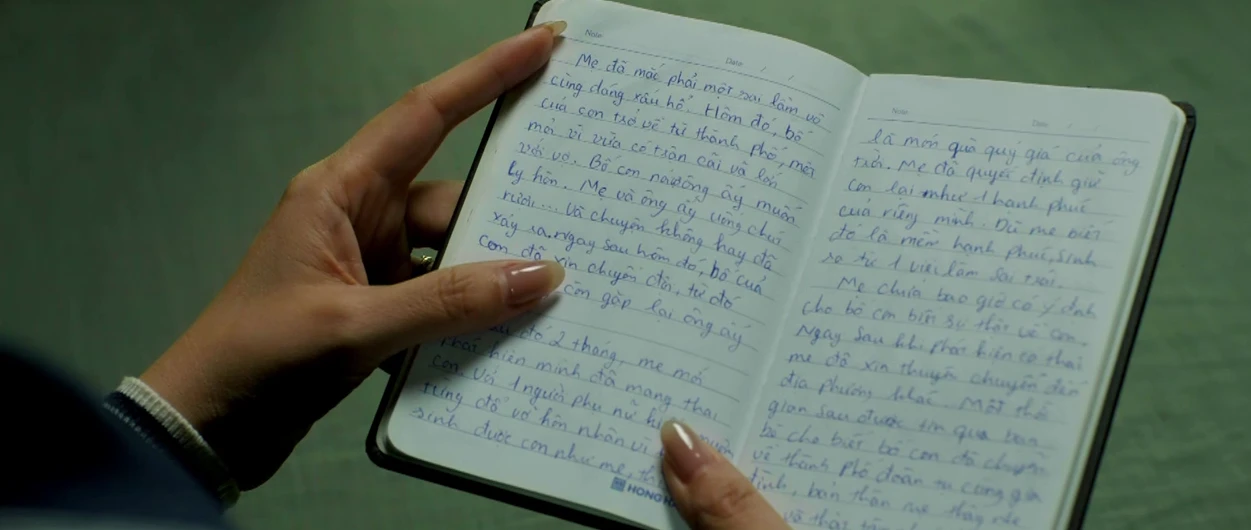 Note
Date / /
Mẹ đã mắc phải một sai lầm vô
cùng đáng xấu hổ. Hôm đó, bố
của con trở về từ thành phố, mệt
mỏi vì vừa có trận cãi vã lớn
với vợ. Bố con nói ông ấy muốn
ly hôn. Mẹ và ông ấy uống chút
rượu... Và chuyện không hay đã
xảy ra. Ngay sau hôm đó, bố của
con đã xin chuyển đi, từ đó
còn gặp lại ông ấy
đó 2 tháng, mẹ mới
phát hiện mình đã mang thai
con. Với 1 người phụ nữ
từng đổ vỡ hôn nhân vì
sinh được con như mẹ,
HONG H
Note
Date / /
là món quà quý giá của ông
trời. Mẹ đã quyết định giữ
con lại như 1 hạnh phúc
của riêng mình. Dù mẹ biết
đó là niềm hạnh phúc, sinh
ra từ 1 việc làm sai trái.
Mẹ chưa bao giờ có ý định
cho bố con biết sự thật về con.
Ngay sau khi phát hiện có thai
mẹ đã xin thuyên chuyển đến
địa phương khác. Một thời
gian sau được tin qua bạn
bè cho biết bố con đã chuyển
về thành phố đoàn tụ cùng gia
đình, bản thân mẹ thấy
và thật